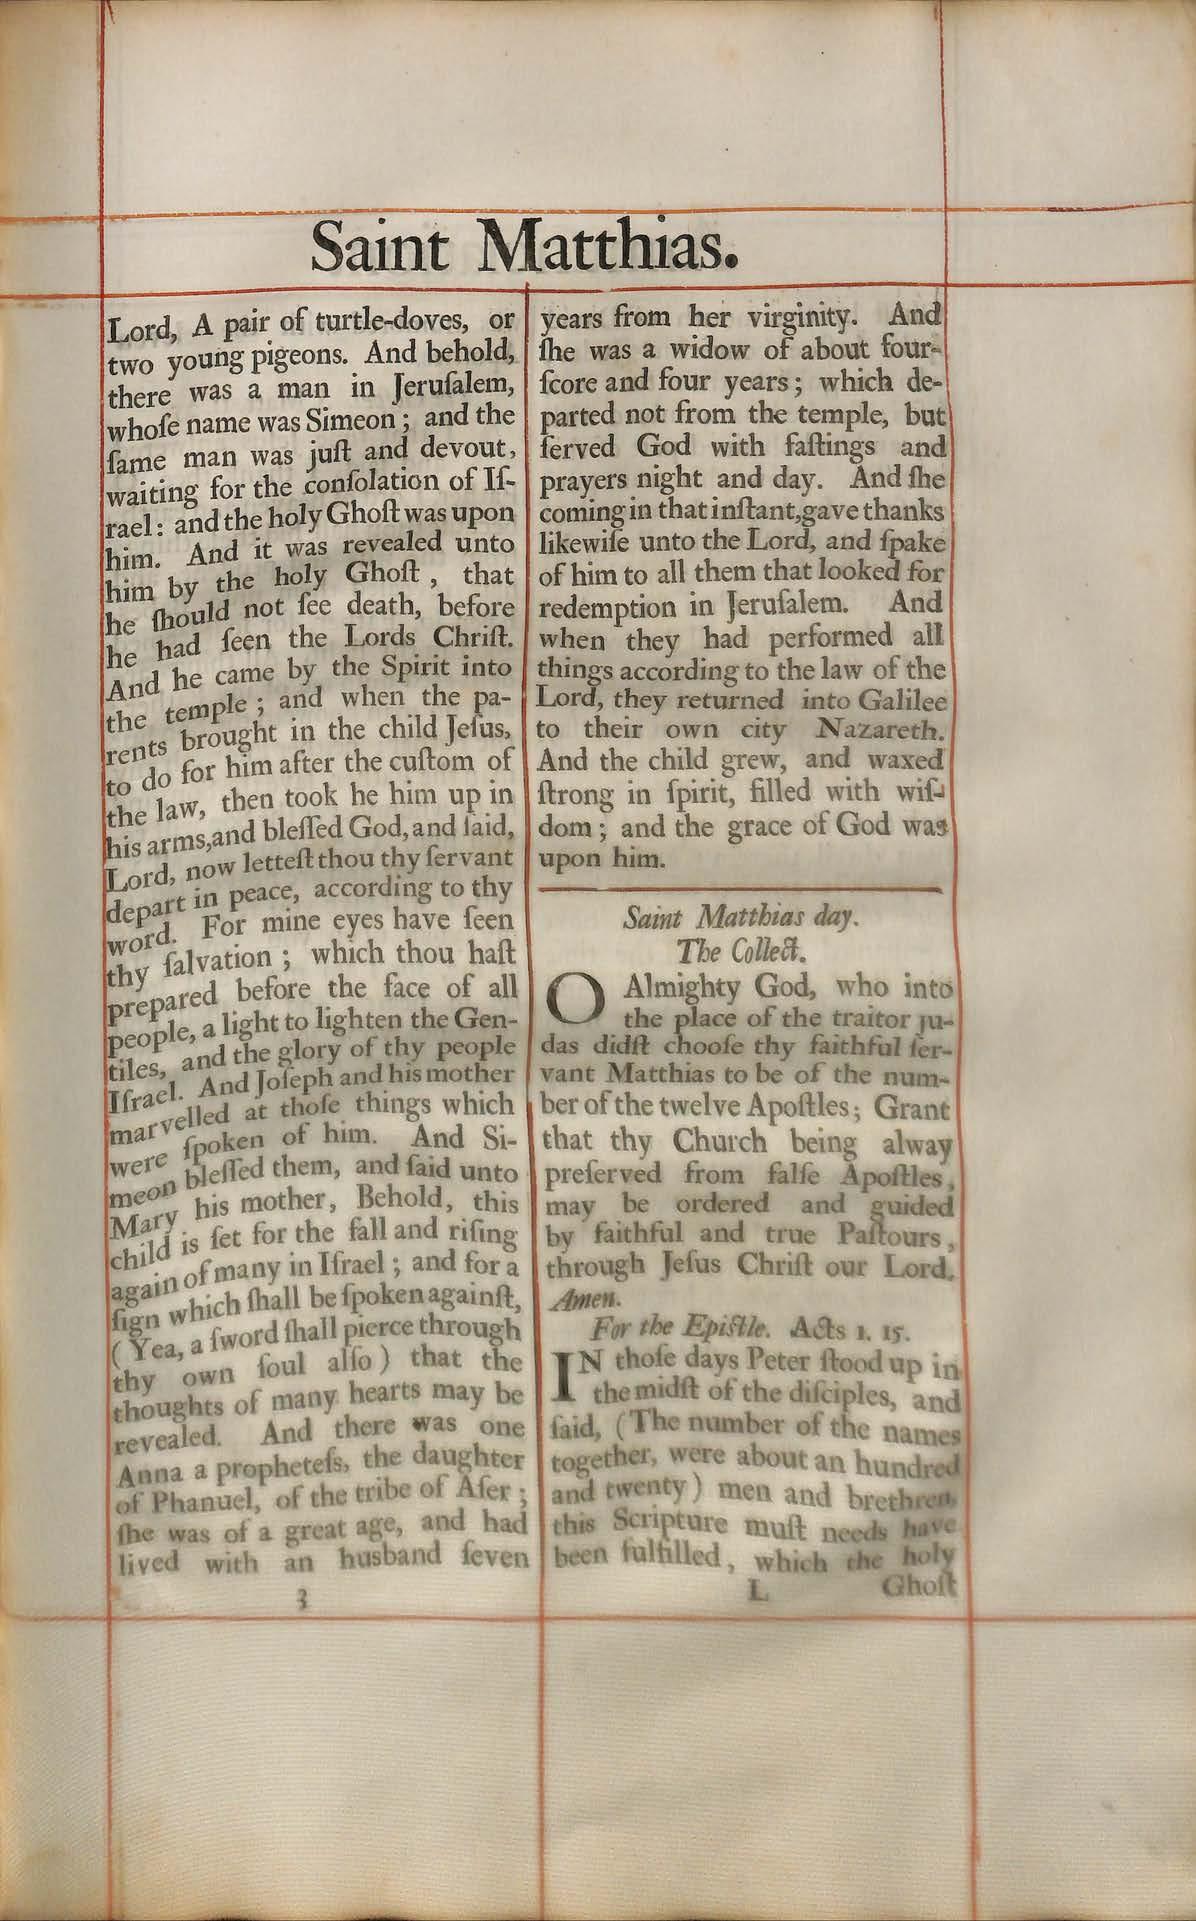 Saint Matthias.
Lord, A pair of turtle-doves, or
two young pigeons. And behold,
there was a man in Jeruſalem,
whoſe name was Simeon; and the
ſame man was juſt and devout,
waiting for the conſolation of Iſ-
rael: and the holy Ghoſt was upon
him. And it was revealed unto
him by the holy Ghoſt, that
he ſhould not ſee death, before
he had ſeen the Lords Chriſt.
And he came by the Spirit into
the temple; and when the pa-
rents brought in the child Jeſus,
to do for him after the cuſtom of
the law, then took he him up in
his arms, and bleſſed God, and ſaid,
Lord, now letteſt thou thy ſervant
depart in peace, according to thy
word. For mine eyes have ſeen
thy ſalvation; which thou haſt
prepared before the face of all
people, a light to lighten the Gen-
tiles, and the glory of thy people
Iſrael. And Joſeph and his mother
marvelled at thoſe things which
were ſpoken of him. And Si-
meon bleſſed them, and ſaid unto
Mary his mother, Behold, this
child is ſet for the fall and riſing
again of many in Iſrael; and for a
ſign which ſhall be ſpoken againſt,
(Yea, a ſword ſhall pierce through
thy own ſoul alſo) that the
thoughts of many hearts may be
revealed. And there was one
Anna a propheteſs, the daughter
of Phanuel, of the tribe of Aſer;
ſhe was of a great age, and had
lived with an husband ſeven
3
years from her virginity. And
ſhe was a widow of about four-
ſcore and four years; which de-
parted not from the temple, but
ſerved God with faſtings and
prayers night and day. And ſhe
coming in that inſtant, gave thanks
likewiſe unto the Lord, and ſpake
of him to all them that looked for
redemption in Jeruſalem. And
when they had performed all
things according to the law of the
Lord, they returned into Galilee
to their own city Nazareth.
And the child grew, and waxed
ſtrong in ſpirit, filled with wiſ-
dom; and the grace of God was
upon him.
Saint Matthias day.
The Collect.
O Almighty God, who into
the place of the traitor Ju-
das didſt chooſe thy faithful ſer-
vant Matthias to be of the num-
ber of the twelve Apoſtles; Grant
that thy Church being alway
preſerved from falſe Apoſtles,
may be ordered and guided
by faithful and true Paſtours,
through Jeſus Chriſt our Lord.
Amen.
For the Epiſtle. Acts 1. 15.
IN thoſe days Peter ſtood up in
the midſt of the diſciples, and
ſaid, (The number of the names
together, were about an hundred
and twenty) men and brethren,
this Scripture muſt needs have
been fulfilled, which the holy
L Ghoſt